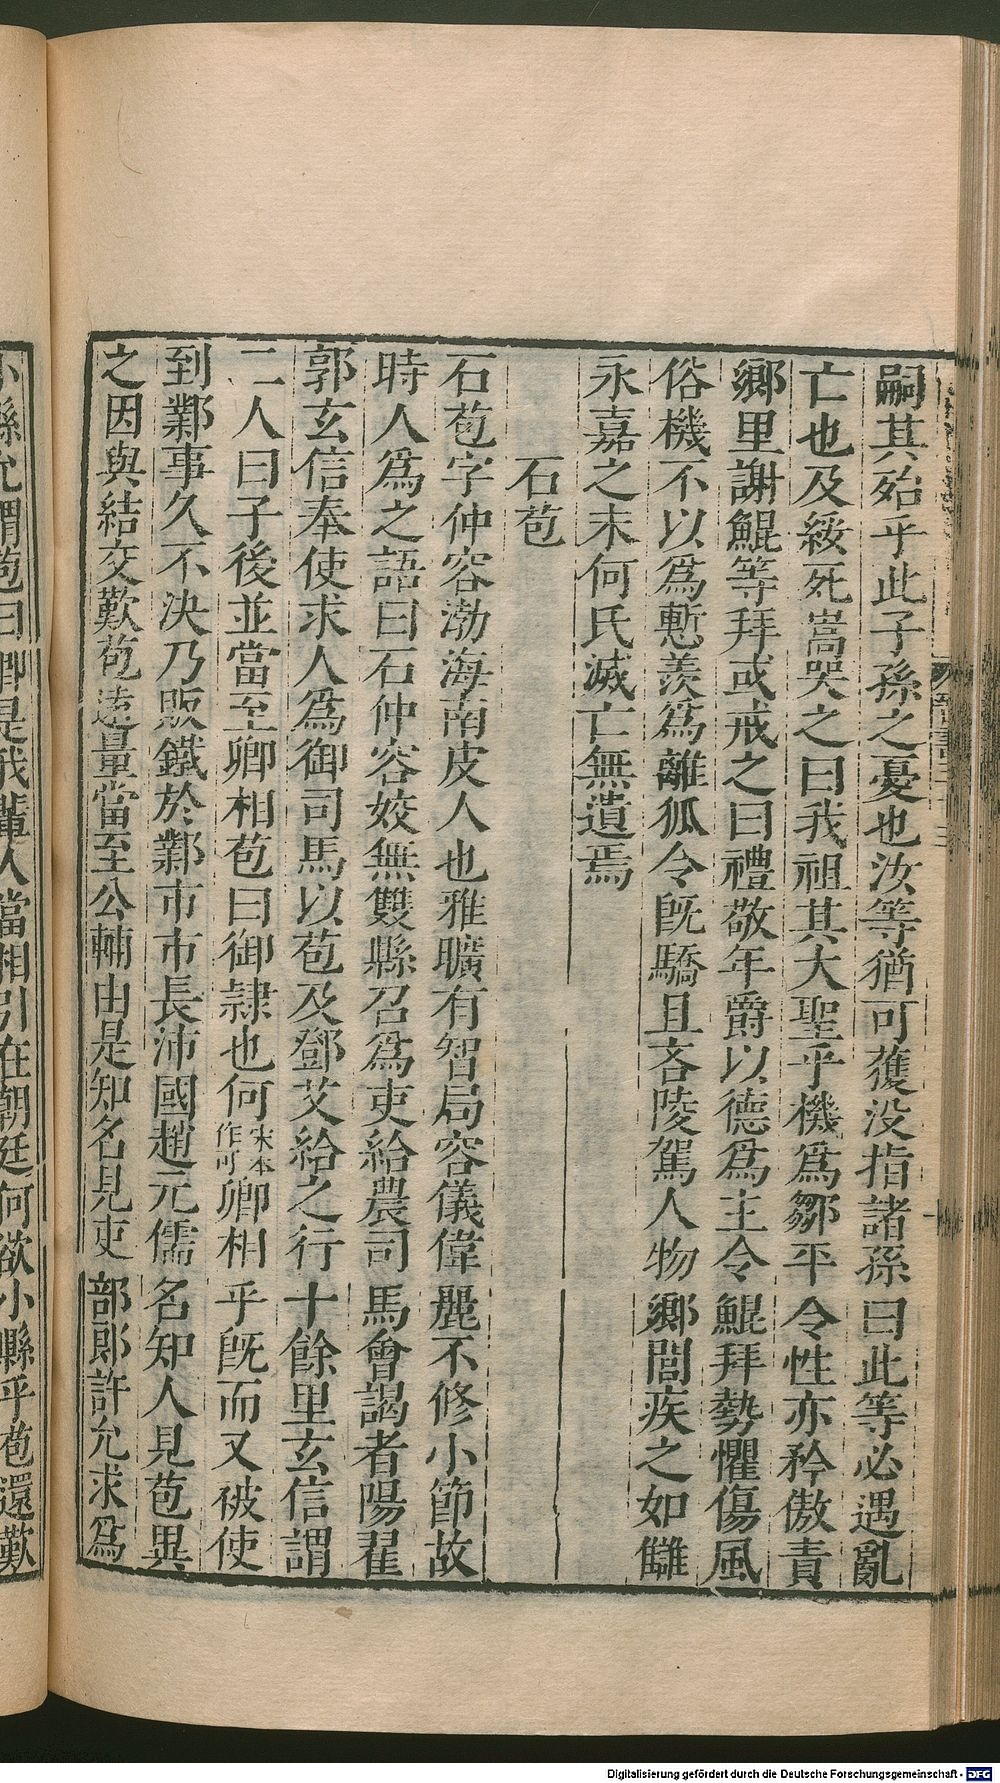 嗣其殆乎此子孫之憂也汝等猶可獲没指諸孫曰此等必遇亂
亡也及綏死嵩哭之曰我祖其大聖乎機爲鄒平令性亦矜傲責
鄉里謝鯤等拜或戒之曰禮敬年爵以德爲主令鯤拜勢懼傷風
俗機不以爲慙羨爲離狐令旣驕且吝陵駕人物鄉閭疾之如讎
永嘉之末何氏滅亡無遺焉
石苞
石苞字仲容渤海南皮人也雅曠有智局容儀偉麗不修小節故
時人爲之語曰石仲容姣無雙縣召爲吏給農司馬會謁者陽翟
郭玄信奉使求人爲御司馬以苞及鄧艾給之行十餘里玄信謂
二人曰子後並當至卿相苞曰御隷也何宋本作可卿相乎旣而又被使
到鄴事久不决乃販鐵於鄴市市長沛國趙元儒名知人見苞異
之因與結交歎苞遠量當至公輔由是知名見吏部郎許允求爲
小縣允謂苞曰卿是我輩人當相引在朝廷何欲小縣乎苞還歎
Digitalisierung gefördert durch die Deutsche Forschungsgemeinschaft - DFG